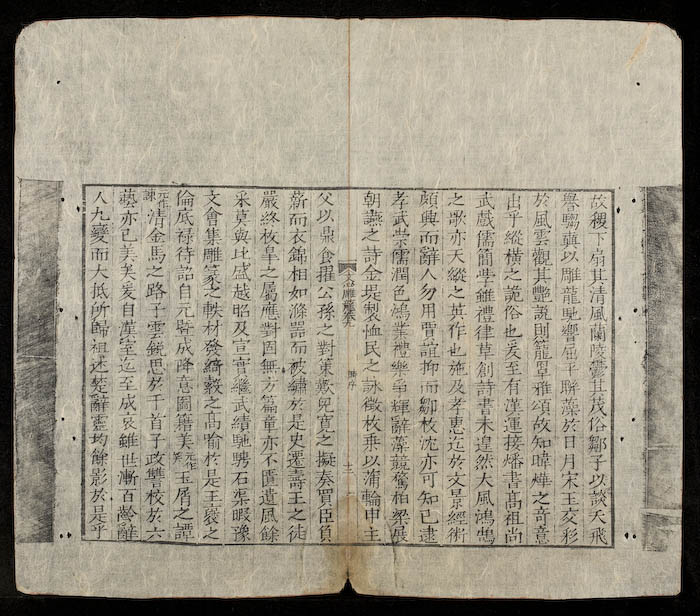 故稷下扇其清風蘭陵鬱其茂俗鄒子以談天飛
譽騶奭以雕龍馳響屈平聯藻於日月宋玉交彩
於風雲觀其艷說則籠罩雅頌故知暐燁之奇意
出乎縱橫之詭俗也爰至有漢運接燔書高祖尚
武戲儒簡學雖禮律草創詩書未遑然大風鴻鵠
之歌亦天縱之英作也施及孝惠迄於文景經術
頗興而辭人勿用賈誼抑而鄒枚沈亦可知已逮
孝武崇儒潤色鴻業禮樂爭輝辭藻競騖柏梁展
朝讌之詩金堤製恤民之詠徵枚乘以蒲輪申主
文心雕龍卷九 時序 十
父以鼎食擢公孫之對策歎兒寬之擬奏買臣負
薪而衣錦相如滌器而被繡於是史遷壽王之徒
嚴終枚皐之屬應對固無方篇章亦不匱遺風餘
采莫與比盛越昭及宣實繼武績馳騁石渠暇豫
文會集雕篆之軼材發綺縠之高喻於是王褒之
倫底祿待詔自元曁成降意圖籍美元作玉屑之譚
元作諫清金馬之路子雲銳思於千首子政讐校於六
藝亦已美矣爰自漢室迄至成哀雖世漸百齡辭
人九變而大抵所歸祖述楚辭靈均餘影於是乎